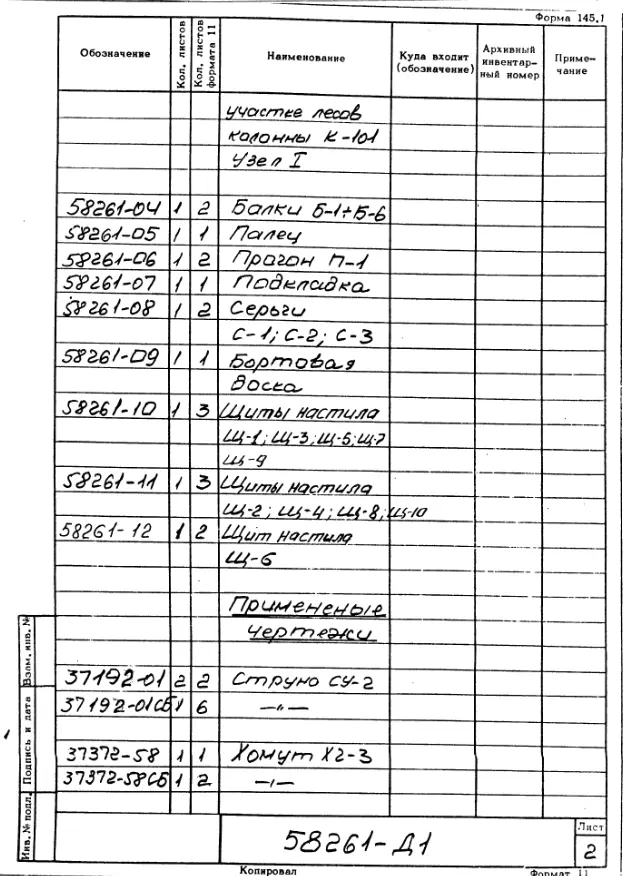 Форма 145.1
Обозначение Кол. листов Кол. листов формата 11 Наименование Куда входит (обозначение) Архивный инвентар-ный номер Приме-чание
участке лесов
колонны К-101
Узел I
58261-04 1 2 Балки Б-1÷Б-6
58261-05 1 1 Палец
58261-06 1 2 Прогон П-1
58261-07 1 1 Подкладка
58261-08 1 2 Серьги
С-1; С-2; С-3
58261-09 1 1 Бортовая
доска
58261-10 1 3 Щиты настила
Щ-1; Щ-3; Щ-5; Щ-7
Щ-9
58261-11 1 3 Щиты настила
Щ-2; Щ-4; Щ-8; Щ-10
58261-12 1 2 Щит настила
Щ-6
Примененые
чертежи
37192-01 2 2 Струно СУ-2
37192-01СБ 1 6 —"—
37372-58 1 1 Хомут Х2-3
37372-58СБ 1 2 —"—
Инв. № подл. Подпись и дата Взам. инв. №
58261-Д1
Лист
2
Копировал Формат 11